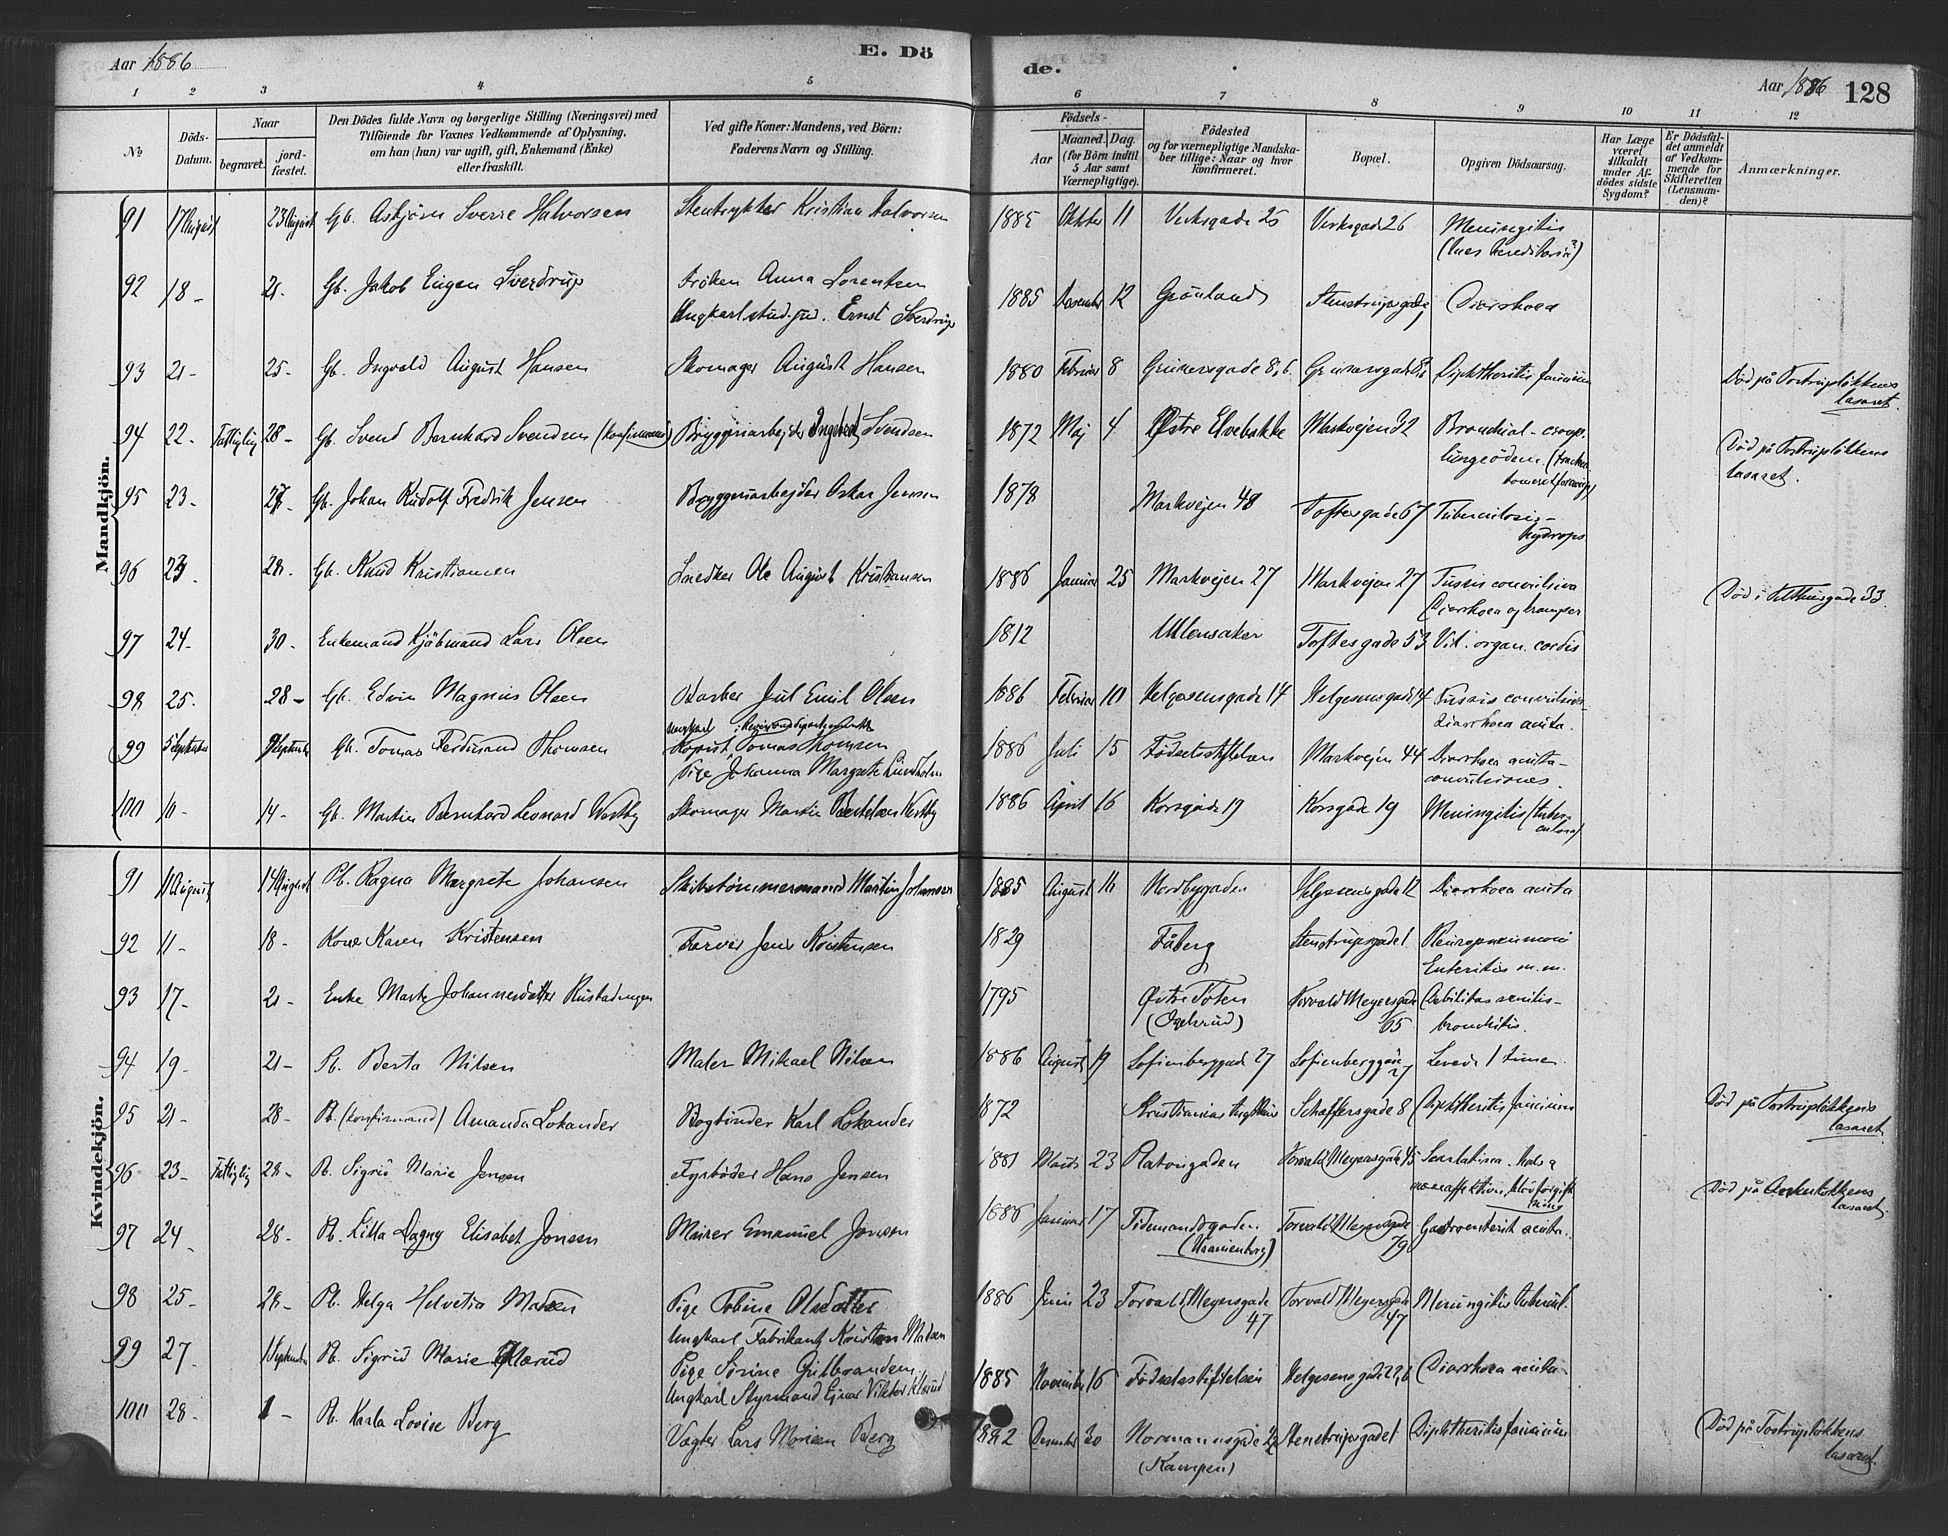 Aar 1886 E. Dö
de. Aar 1886 128
1 2 3 4 5 6 7 8 9 10 11 12
№
Döds-Datum.
Naar
begravet.
jordfæstet.
Den Dödes fulde Navn og borgerlige Stilling (Næringsvei) med
Tilföiende for Voxnes Vedkommende af Oplysning,
om han (hun) var ugift, gift, Enkemand (Enke)
eller fraskilt.
Ved gifte Koner: Mandens, ved Börn:
Faderens Navn og Stilling.
Födsels-
Aar
Maaned. Dag.
(for Börn indtil
5 Aar samt
Værnepligtige).
Födested
og for værnepligtige Mandskaber tillige: Naar og hvor
konfirmeret.
Bopæl.
Opgiven Dödsaarsag.
Har Læge
været
tilkaldt
under Afdödes sidste
Sygdom?
Er Dödsfaldet anmeldt
af Vedkommende for
Skifteretten
(Lensmanden)?
Anmærkninger.
Mandkjön.
91 17 August 23 August Gb. Asbjörn Sverre Halvorsen Stentrykker Kristian Halvorsen 1885 Oktbr 11 Verksgade 26 Verksgade 26 Meningitis
(lues hereditaria?)
92 18 - 21 - Gb. Jakob Eugen Sverdrup Fröken Anna Lorentzen 1885 December 12 Grönland Stenstrupsgade Diarrhoea
Ungkarl stud. jur. Ernst Sverdrup
93 21 - 25 - Gb. Ingvald August Hansen Skomager August Hansen 1880 Februar 8 Grünersgade 8,6. Grünersgade Diphtheritis faucium Död på Tostruplökkens
lasaret.
94 22 - Fattiglig 28 - Gb. Svend Bernhard Svendsen (konfirmand) Bryggeriarbejder Svendsen 1872 Maj 4 Östre Elvebakke Markvejen 32 Bronchial-croup.
lungeödem Död på Tostruplökkens
lasaret.
95 23 - 27 - Gb. Johan Rudolf Fredrik Jensen Bryggeriarbejder Oskar Jensen 1878 Markvejen 48 Toftesgade 67 Tuberculosis-
hydrops
96 23 - 28 - Gb. Knud Kristiansen Snedker Ole August Kristiansen 1886 Januar 25 Markvejen 27 Markvejen 27 Tussis convulsiva
Diarrhoea og kramper Död i Tilthusgade 33.
97 24 - 30 - Enkemand Kjöbmand Lars Olsen 1812 Ullensaker Toftesgade 53 Vit. organ. cordis
98 25 - 28 - Gb. Edvin Magnus Olsen Barber Jul Emil Olsen 1886 Februar 10 Helgesensgade 14 Helgesensgade 14 Tussis convulsiva
Diarrhoea acuta.
99 5 September September Gb. Tomas Ferdinand Thomsen Kopist Tomas Thomsen 1886 Juli 15 Födselsstiftelsen Markvejen 44 Diarrhoea acuta-
convulsiones.
Pige Johanna Margrete Lindholm
100 10 - 14 - Gb. Martin Bernhard Leonard Westby Skomager Martin Bertelsen Westby 1886 April 16 Korsgade 19 Korsgade 19 Meningitis (tuberculosa)
Kvindekjön.
91 11 August 14 August Pb. Ragna Margrete Johansen Skibstömmermand Martin Johansen 1885 August 16 Nordbygaden Helgesensgade 12 Diarrhoea acuta
92 11 - 18 - Kone Karen Kristensen Farver Jens Kristensen 1829 Fåberg Stenstrupsgade 1 Pleuropneumoni
Enteritis m.m.
93 17 - 21 - Enke Marte Johannesdatter Rustadengen 1795 Östre Toten Torvald Meyersgade Debilitas senilis-
65 bronchitis.
94 19 - 21 - Pb. Berta Nilsen Maler Mikael Nilsen 1886 August 19 Sofienberggade 27 Sofienberggade 27 Levede 1 time
95 21 - 28 - Pb. (konfirmand) Amanda Lokander Bogbinder Karl Lokander 1872 Schaffersgade 8 Diphtheritis faucium Död på Tostruplökkens
lasaret.
96 23 - Fattiglig 28 - Pb. Sigrid Marie Jensen Fyrböder Hans Jensen 1881 Marts 23 Platougaden Torvald Meyersgade 45 Scarlatina. Hals &
næseaffektion, blodforgiftning Död på Ankerlökkens
lasaret.
97 24 - 28 - Pb. Lilla Dagny Elisabet Jonsen Murer Emanuel Jonsen 1886 Januar 17 Tidemandsgaden Torvald Meyersgade Gastroenterit acuta.
(Uranienborg) 79
98 25 - 28 - Pb. Helga Helvetia Madsen Pige Tobine Olsdatter 1886 Juni 23 Torvald Meyersgade Torvald Meyersgade Meningitis tubercul.
47 47
Ungkarl Fabrikant Kristian Madsen
99 27 - 1 September Pb. Sigrid Marie Pige Sörine Gulbrandsen 1885 November 16 Födselsstiftelsen Helgesensgade Diarrhoea acuta-
Ungkarl Styrmand Ejnar Viktor
100 28 - 1 - Pb. Karla Lovise Berg Vægter Lars Monsen Berg 1882 December 30 Normannsgade Stenstrupsgade 1 Diphtheritis faucium Död på Tostruplökkens
(Kampen) lasaret.